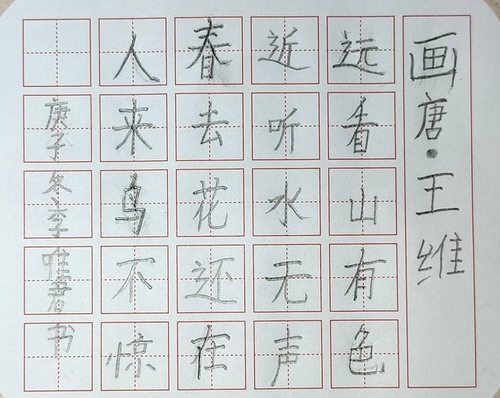 画唐·王维
远看山有色
近听水无声
春去花还在
人来鸟不惊
庚子冬季唯君书